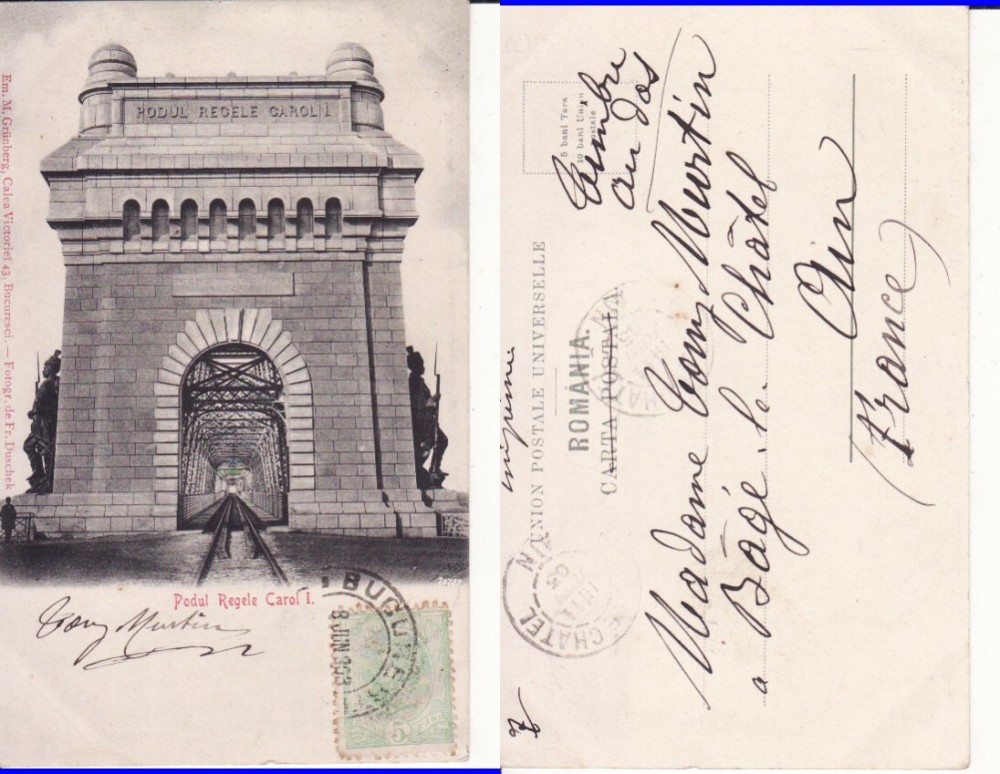 PODUL REGELE CAROL I.
Em. M. Grünberg, Calea Victoriei 43, Bucuresci. — Fotogr. de Fr. Duschek
Podul Regele Carol I.
Tony Martin
BUCURES
8 JUN
5
5 bani Tara
10 bani Uniunea
postale
Timbre
au dos
UNION POSTALE UNIVERSELLE
ROMÂNIA.
CARTA POSTALA
Madame Tony Martin
a Bâgé-le-Châtel
Ain
(France)
CHATEL
AIN